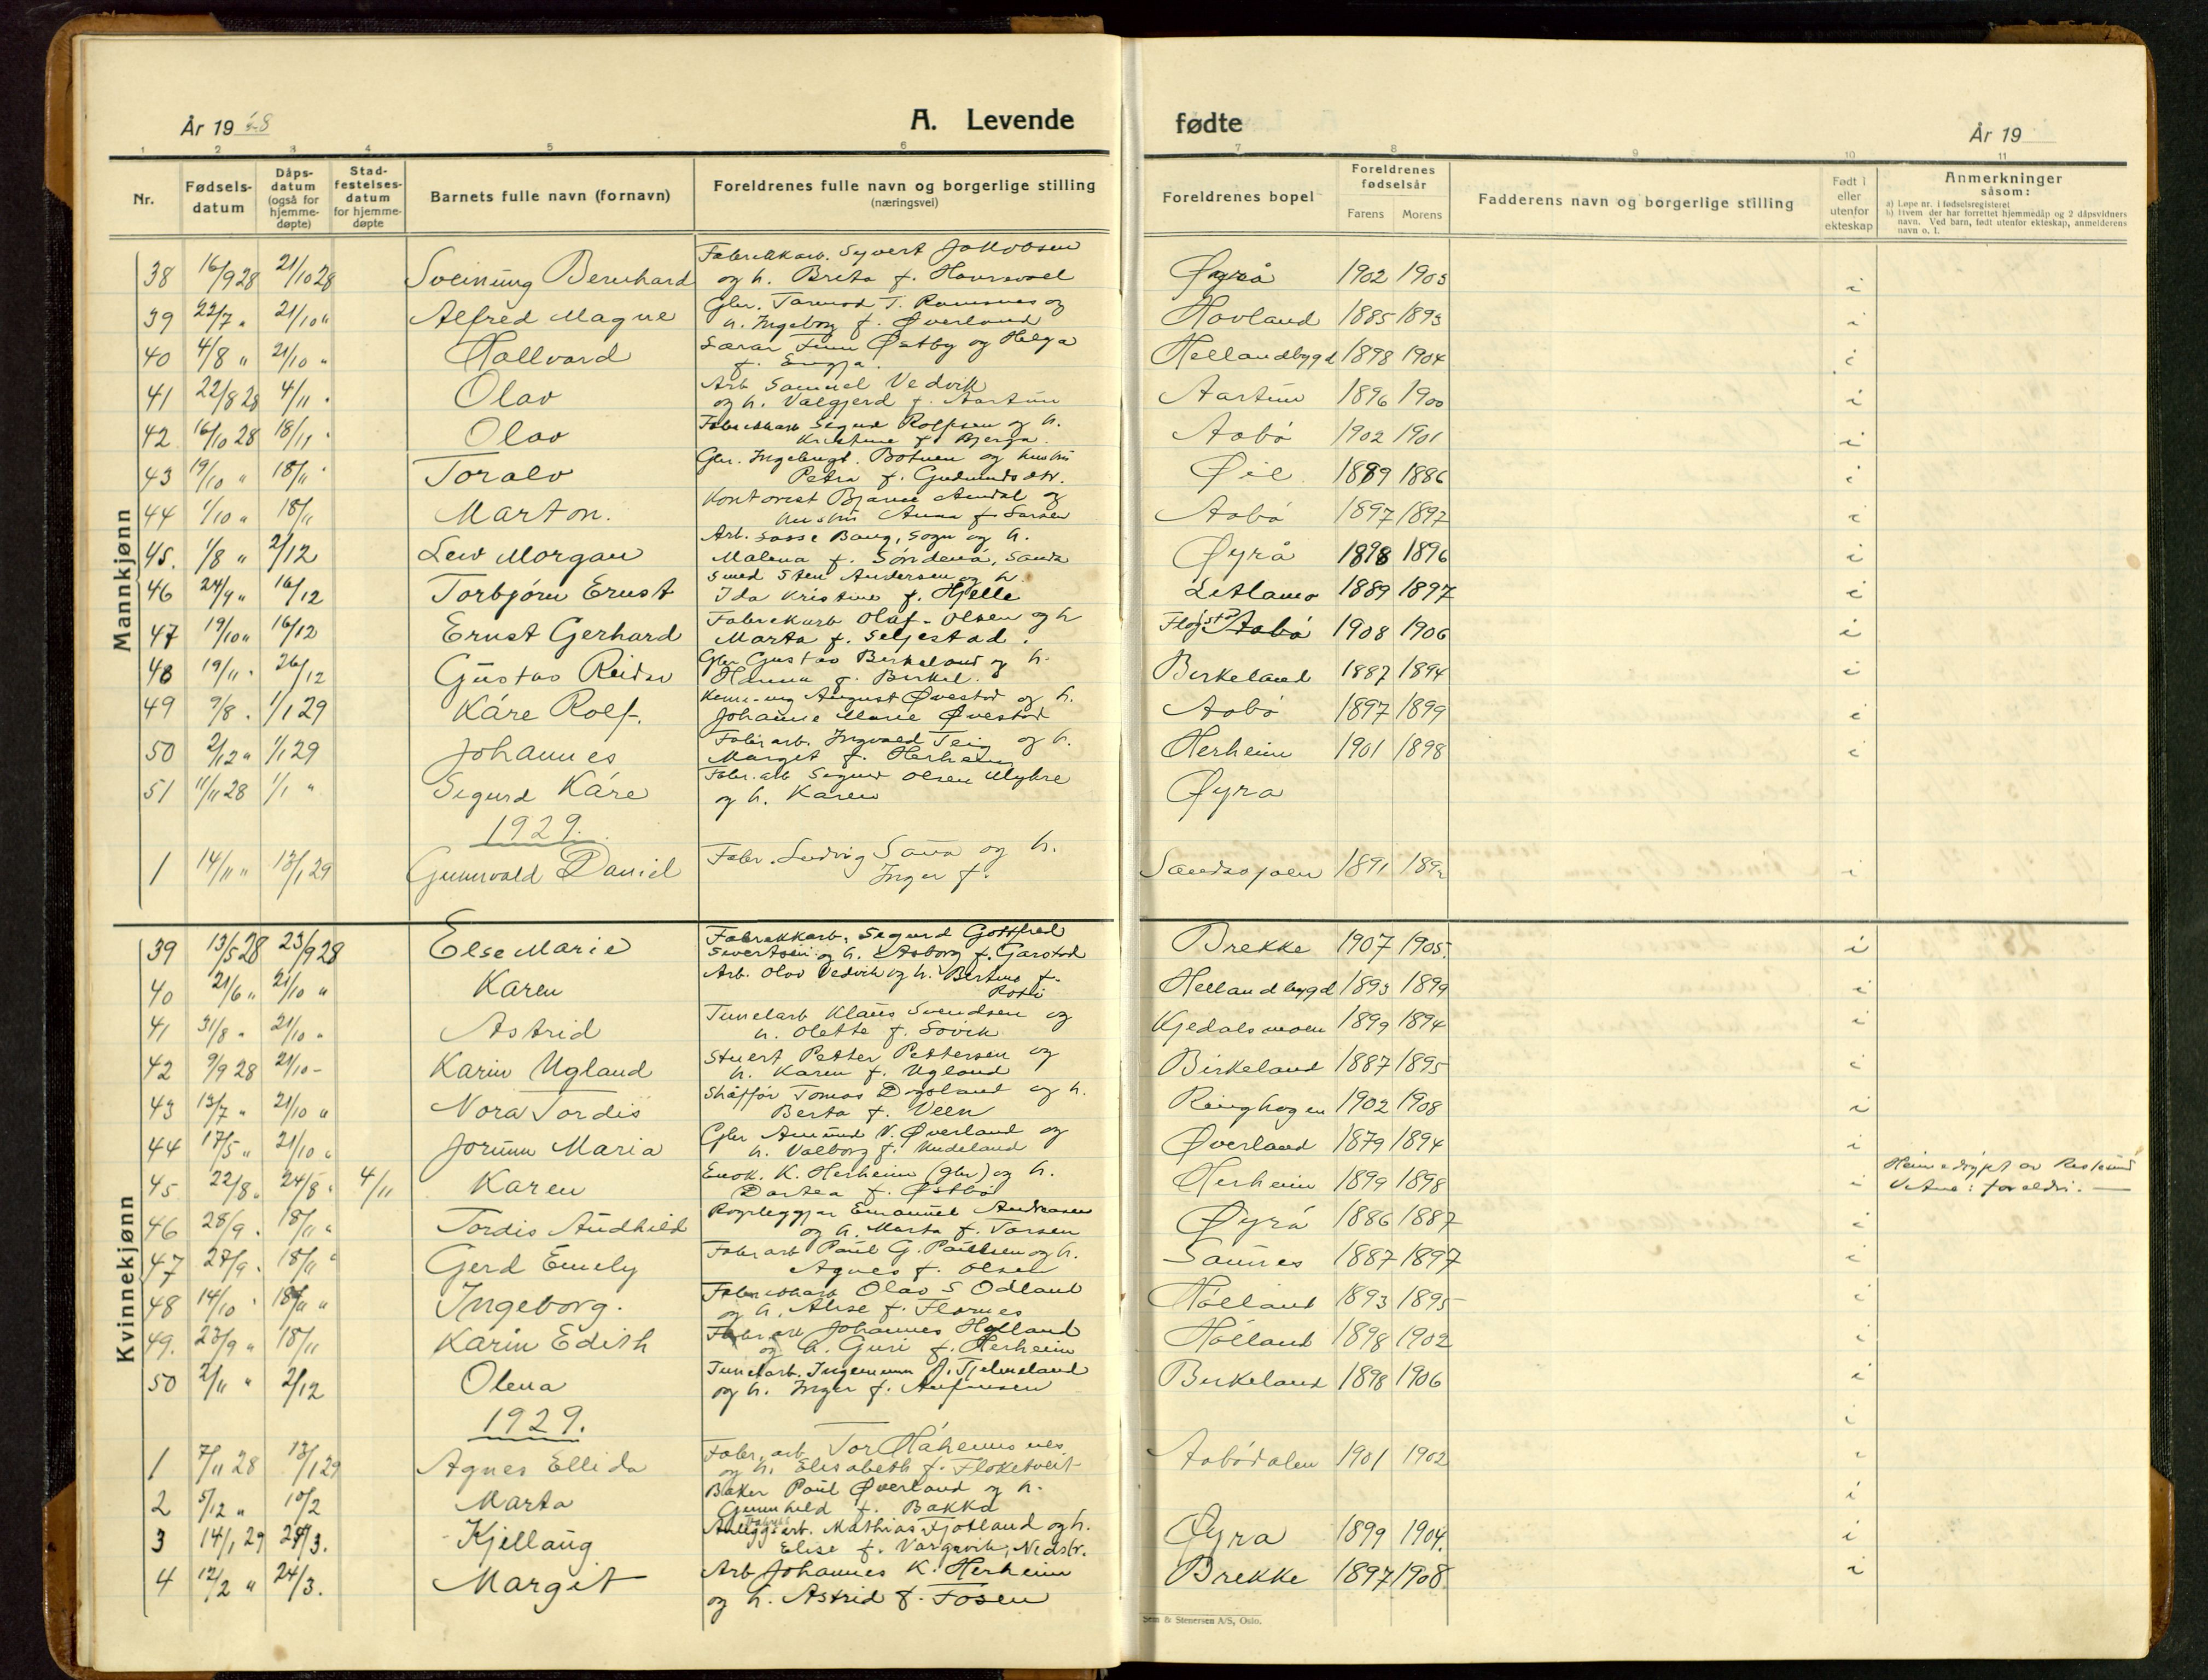 År 19 28
A. Levende
fødte
År 19
1 2 3 4 5 6 7 8 9 10 11
Nr.
Fødsels-
datum
Dåps-
datum
(også for
hjemme-
døpte)
Stad-
festelses-
datum
for hjemme-
døpte
Barnets fulle navn (fornavn)
Foreldrenes fulle navn og borgerlige stilling
(næringsvei)
Foreldrenes bopel
Foreldrenes
fødselsår
Farens Morens
Fadderens navn og borgerlige stilling
Født i
eller
utenfor
ekteskap
Anmerkninger
såsom:
a) Løpe nr. i fødselsregisteret
b) Hvem der har forrettet hjemmedåp og 2 dåpsvidners
navn. Ved barn, født utenfor ekteskap, anmelderens
navn o. l.
Mannkjønn
38 16/9 28 21/10 28 Sveinung Bernhard Fabrikkarb. Syvert Jakobsen
og h. Brita f. Øyrå 1902 1903 i
39 22/7 " 21/10 " Alfred Magne Gbr. Tarmod T. Ramsnes og
h. Ingeborg f. Øverland Hovland 1885 1893 i
40 4/8 " 21/10 " Hallvard Lærar Finn Østby og Helga
f. Enga. Hellandbygd 1898 1904 i
41 22/8 28 4/11 " Olav Arb Samuel Vedvik
og h. Valgjerd f. Aartun Aartun 1896 1900 i
42 16/10 28 18/11 " Olav Fabrikkarb Sigurd Rolfsen og h.
Kristine f. Bjerga. Aabø 1902 1901 i
43 19/10 " 18/11 " Toralv Gbr. Ingebrigt. Botnen og hustru
Petra f. Gudmundsdtr. Øie 1889 1886 i
44 1/10 " 18/11 Marton. Kontorist Bjarne og
hustru Anna f. Larsen Aabø 1897 1897 i
45. 1/8 " 2/12 Leiv Morgan Arb. Lasse Bang, Sogn og h.
Malena f. Søndenå, Sauda Øyrå 1898 1896 i
46 24/9 " 16/12 Torbjørn Ernst Smed Sten Andersen og h.
Ida Kristine f. Hjelle Litlamo 1889 1897 i
47 19/10 " 16/12 Ernst Gerhard Fabrikkarb Olaf Olsen og h
Marta f. Seljestad. Aabø 1908 1906 i
48 19/11 " 26/12 Gustav Reidar Gbr Gustav Birkeland og h.
Hanna f. Birkel. Birkeland 1887 1894 i
49 9/8 " 1/1 29 Kåre Rolf. August Øvestad og h.
Johanne Marie Øvestad Aabø 1897 1899 i
50 2/12 " 1/1 29 Johannes Fabr arb. Ingvald Teig og h.
Marget f. Herheim Herheim 1901 1898 i
51 11/11 28 1/1 " Sigurd Kåre Fabr. arb Sigurd Olsen Myhre
og h. Karen Øyra
1929.
1 14/11 " 13/1 29 Gunnvald Daniel Fabr. Ludvig og h.
Inger f. 1891 1892 i
Kvinnekjønn
39 13/5 28 23/9 28 Else Marie Fabrikkarb. Sigurd Gottfred
Sivertsen og h. Asborg f. Garstad Brekke 1907 1905. i
40 21/6 " 21/10 " Karen Arb. Olav Vedvik og h. Bertine f.
Hellandbygd 1893 1899 i
41 31/8 " 21/10 " Astrid Tunelarb Klaus Svendsen og
h. Olette f. Sovik Kjedalsmoen 1899 1894 i
42 9/9 28 21/10 - Karin Ugland Stuert Petter Pettersen og
h. Karen f. Ugland Birkeland 1887 1895 i
43 13/7 " 21/10 " Nora Tordis Shåffør Tomas Dysland og h.
Berta f. Veen Ringhagen 1902 1908 i
44 17/5 " 21/10 " Jorunn Maria Gbr Amund V. Øverland og
h. Valborg f. Øverland 1879 1894 i
45 22/8 " 24/8 " 4/11 Karen Enok. K. Herheim (gbr) og h.
Dortea f. Østbø Herheim 1899 1898 i Heimedøypt av
Vitne: foreldri.
46 28/9 " 18/11 " Tordis Audhild Røyrleggjar Emanuel Andreasen
og h. Marta f. Øyrå 1886 1887 i
47 27/9 " 18/11 " Gerd Emely Fabr arb Paul G. Paulsen og h.
Agnes f. Olsen Saunes 1887 1897 i
48 14/10 " 18/11 " Ingeborg. Fabrikkarb Olav S Odland
og h. Alise f. Flornes Hølland 1893 1895 i
49. 23/9 " 18/11 Karin Edith Fabr arb Johannes Hølland
og h. Guri f. Herheim Hølland 1898 1902 i
50 2/11 " 2/12 Olena Tunelarb. Ingemunn J. Tjelmeland
og h. Inger f. Birkeland 1898 1906 i
1929. i
1 7/11 28 13/1 29 Agnes Ellida Fabr. arb Tor Håheimsnes
og h. Elisabeth f. Floketveit Aabødalen 1901 1902 i
2 5/12 " 10/2 Marta Baker Paul Øverland og h.
Gunnhild f. Bakka i
3 14/1 29 24/3. Kjellaug Anleggsarb. Mathias Fjotland og h.
Elise f. Vargavik, Nedstr. Øyra 1899 1904. i
4 12/2 " 24/3. Margit Arb Johannes K. Herheim
og h. Astrid f. Fosen Brekke 1897 1908. i
Sem & Stenersen A/S, Oslo.